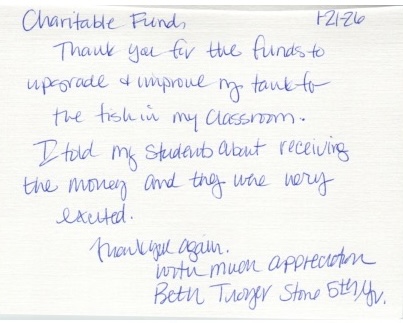 Charitable Funds 1-21-26
Thank you for the funds to
upgrade & improve my tank for
the fish in my classroom.
I told my students about receiving
the money and they were very
excited.
Thank you again.
with much appreciation
Beth Stone 5th Gr.